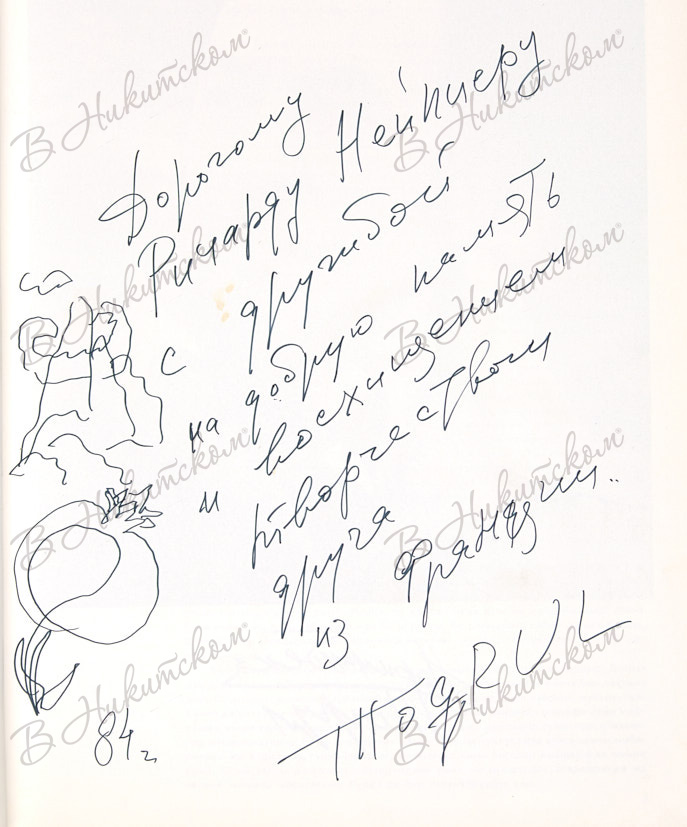 Дорогому
Ричарду Нейпиеру
с дружбой
на добрую память
и восхищением
творчеством
друга
из Франции..
TOGRUL
84 г.
В Никитском
В Никитском
В Никитском
В Никитском
В Никитском
В Никитском
В Никитском
В Никитском